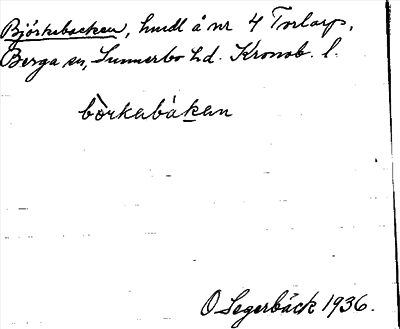 Björkebacken, hmdl å nr 4 Torlarp,
Berga sn, Sunnerbo hd. Kronob. l.
bo̊rkabàkan
O Segerbäck 1936.